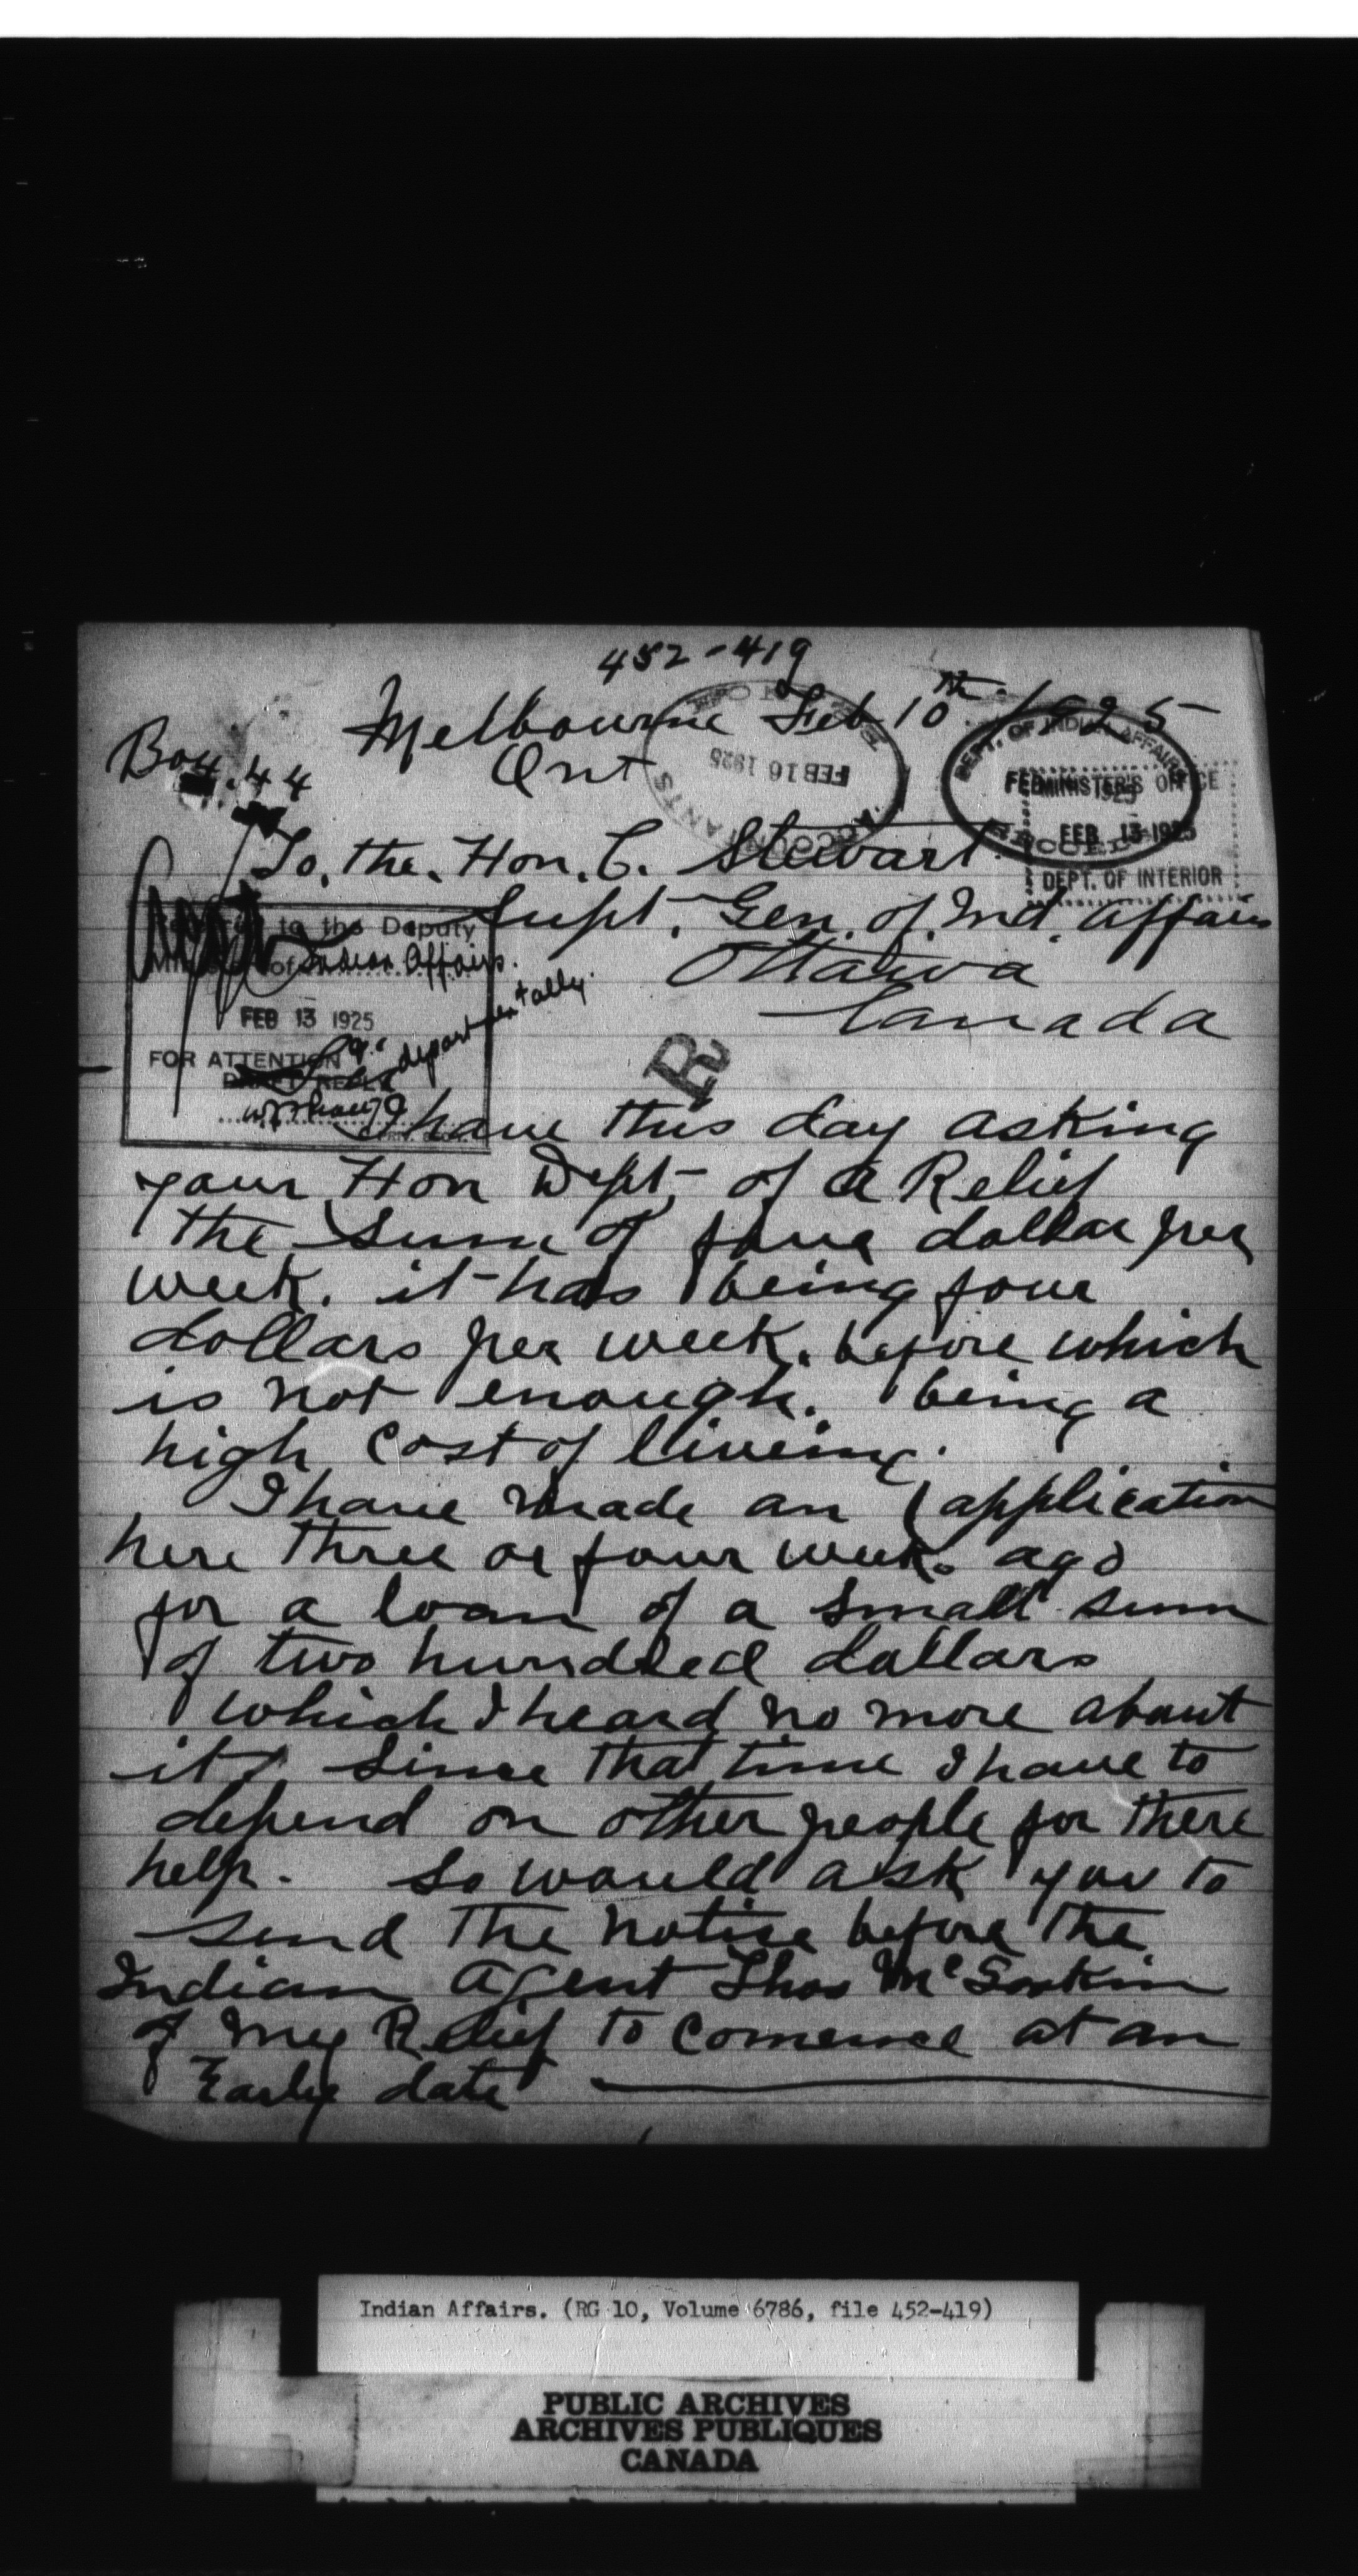 452-419
Melbourne Feb 10th 1925
Box 44
Ont
FEB 16 1925
ACCOUNTANTS
DEPT. OF INDIAN AFFAIRS
MINISTER'S OFFICE
FEB 13 1925
DEPT. OF INTERIOR
To, the, Hon. C. Stewart
Supt. Gen. of. Ind. affairs
Ottawa
Canada
to the Deputy
of Indian Affairs.
FEB 13 1925
FOR ATTENTION
departmentally
R
I have this day asking
your Hon Dept, of a Relief
the Sum of five dollar per
week. it has being four
dollars per week. before which
is not enough. being a
high cost of liveing.
I have made an application
here three or four weeks ago
for a loan of a small sum
of two hundred dollars
which I heard no more about
it, since that time I have to
depend on other people for there
help. So would ask you to
send the notice before the
Indian agent Thos
of my Relief to comence at an
Early date
Indian Affairs. (RG 10, Volume 6786, file 452-419)
PUBLIC ARCHIVES
ARCHIVES PUBLIQUES
CANADA